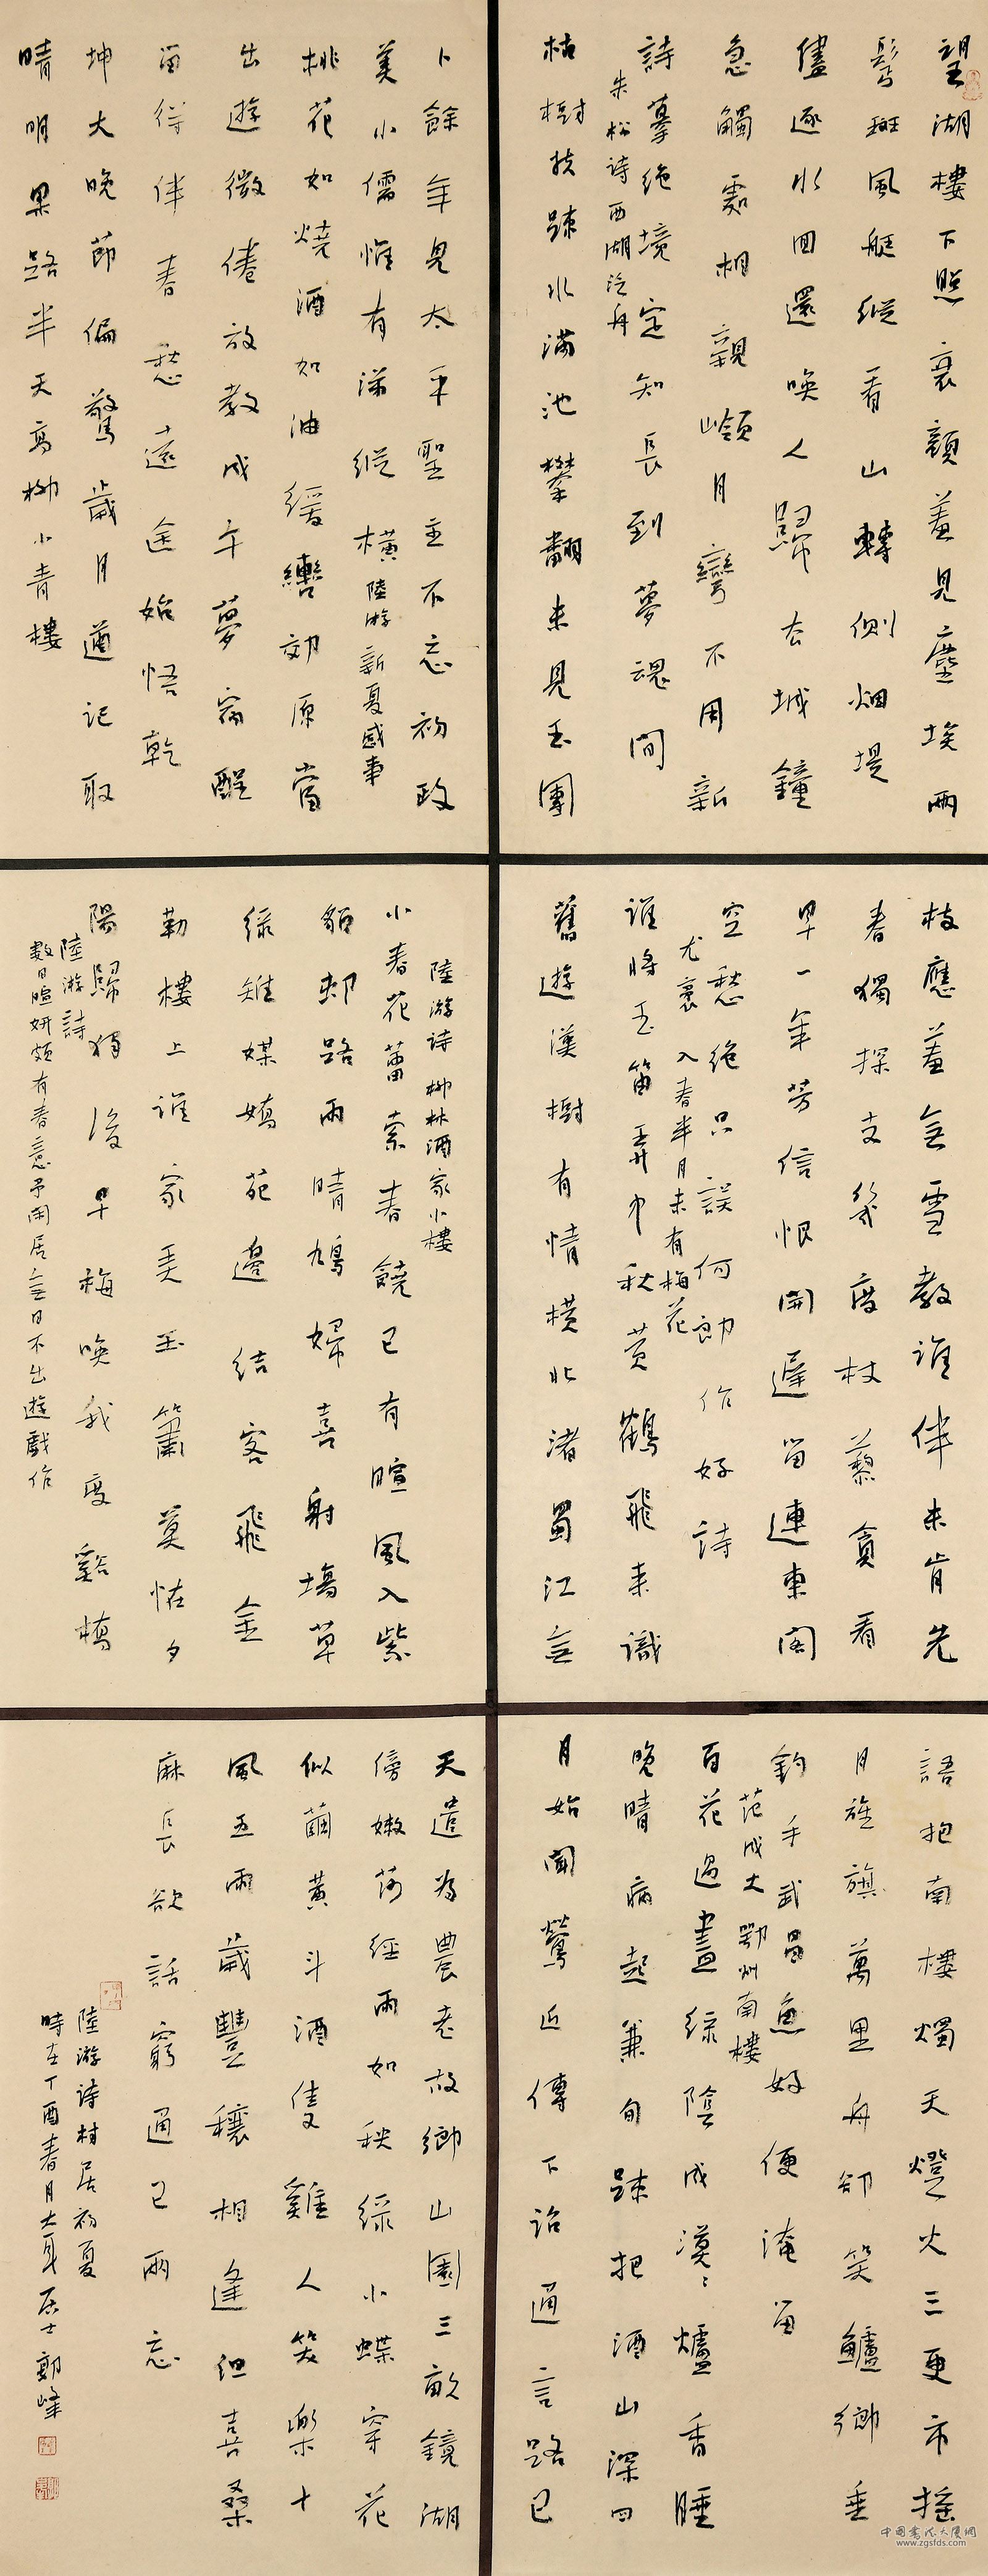 望湖樓下照衰顏羞見塵埃兩
鬢斑風艇縱看山轉側烟堤
儘逐水回還喚人歸去城鐘
急觸處相親嶺月彎不用新
詩摹絕境定知長到夢魂間
朱松詩西湖泛舟
枯樹扶疎水滿池攀翻未見玉團
枝應羞無雪教誰伴未肯先
春獨探支幾度杖藜貪看
早一年芳信恨開遲留連東閣
空愁絕只誤何郎作好詩
尤袤入春半月未有梅花
誰將玉笛弄中秋黃鶴飛來識
舊遊漢樹有情橫北渚蜀江無
語抱南樓燭天燈火三更市搖
月旌旗萬里舟卻笑鱸鄉垂
釣手武昌魚好便淹留
范成大鄂州南樓
百花過盡綠陰成漠漠爐香睡
晚晴病起兼旬疎把酒山深四
月始聞鶯近傳下詔通言路已
卜餘年見太平聖主不忘初政
美小儒惟有涕縱橫陸游新夏感事
桃花如燒酒如油緩轡郊原當
出遊微倦放教成午夢宿醒
留得伴春愁遠途始悟乾
坤大晚節偏驚歲月遒記取
晴明果路半天高柳小青樓
陸游詩柳林酒家小樓
小春花蕾索春饒已有暄風入紫
貂郊路雨晴鳩婦喜射塲草
綠雉媒嬌苑邊結客飛金
勒樓上誰家弄玉簫莫怪夕
陽歸獨後早梅喚我度谿橋
陸游詩
數日暄妍頗有春意予閑居無日不出遊戲作
天遣為農老故鄉山園三畝鏡湖
傍嫩莎經雨如秧綠小蝶穿花
似繭黃斗酒隻雞人笑樂十
風五雨歲豐穰相逢但喜桑
麻長欲話窮通已兩忘
陸游詩村居初夏
時在丁酉春月大夏居士郭峰
中國書法大廈網
www.zgsfds.com